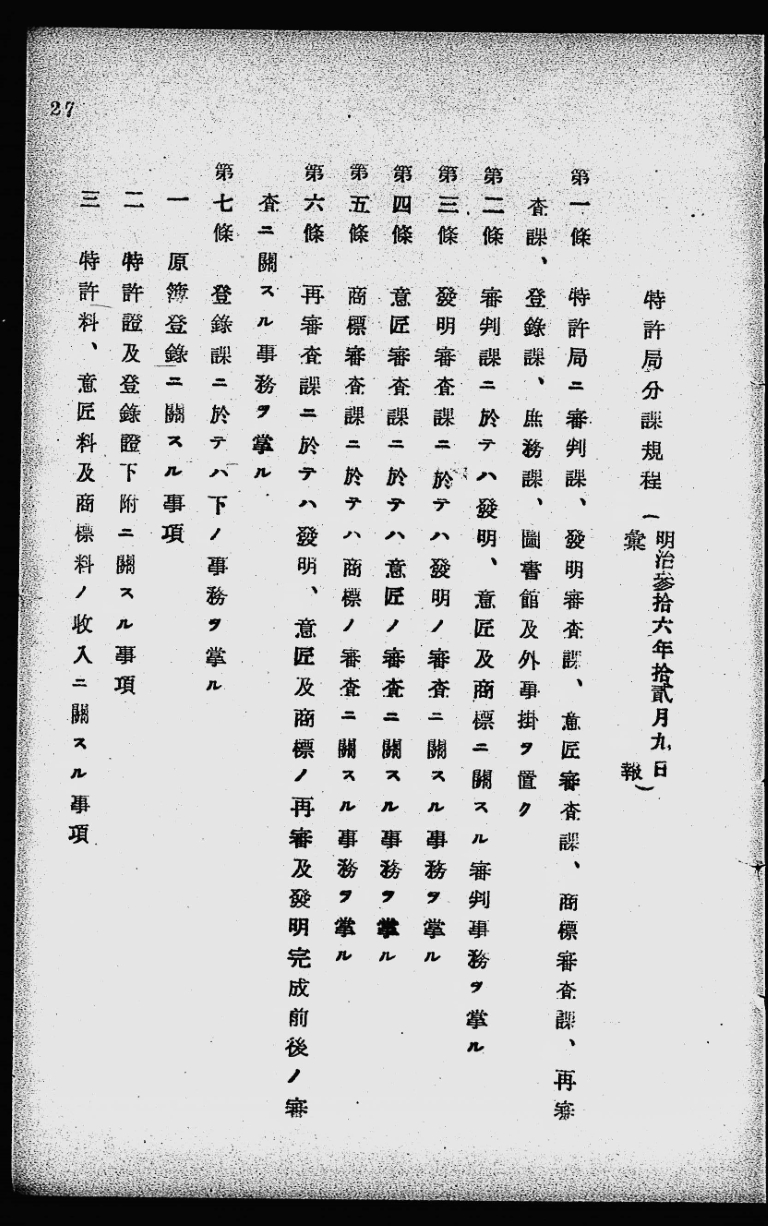 27
特許局分課規程(明治參拾六年拾貳月九日
彙報)
第一條 特許局ニ審判課、發明審査課、意匠審査課、商標審査課、再審
査課、登錄課、庶務課、圖書館及外事掛ヲ置ク
第二條 審判課ニ於テハ發明、意匠及商標ニ關スル審判事務ヲ掌ル
第三條 發明審査課ニ於テハ發明ノ審査ニ關スル事務ヲ掌ル
第四條 意匠審査課ニ於テハ意匠ノ審査ニ關スル事務ヲ掌ル
第五條 商標審査課ニ於テハ商標ノ審査ニ關スル事務ヲ掌ル
第六條 再審査課ニ於テハ發明、意匠及商標ノ再審及發明完成前後ノ審
査ニ關スル事務ヲ掌ル
第七條 登錄課ニ於テハ下ノ事務ヲ掌ル
一 原簿登錄ニ關スル事項
二 特許證及登錄證下附ニ關スル事項
三 特許料、意匠料及商標料ノ收入ニ關スル事項